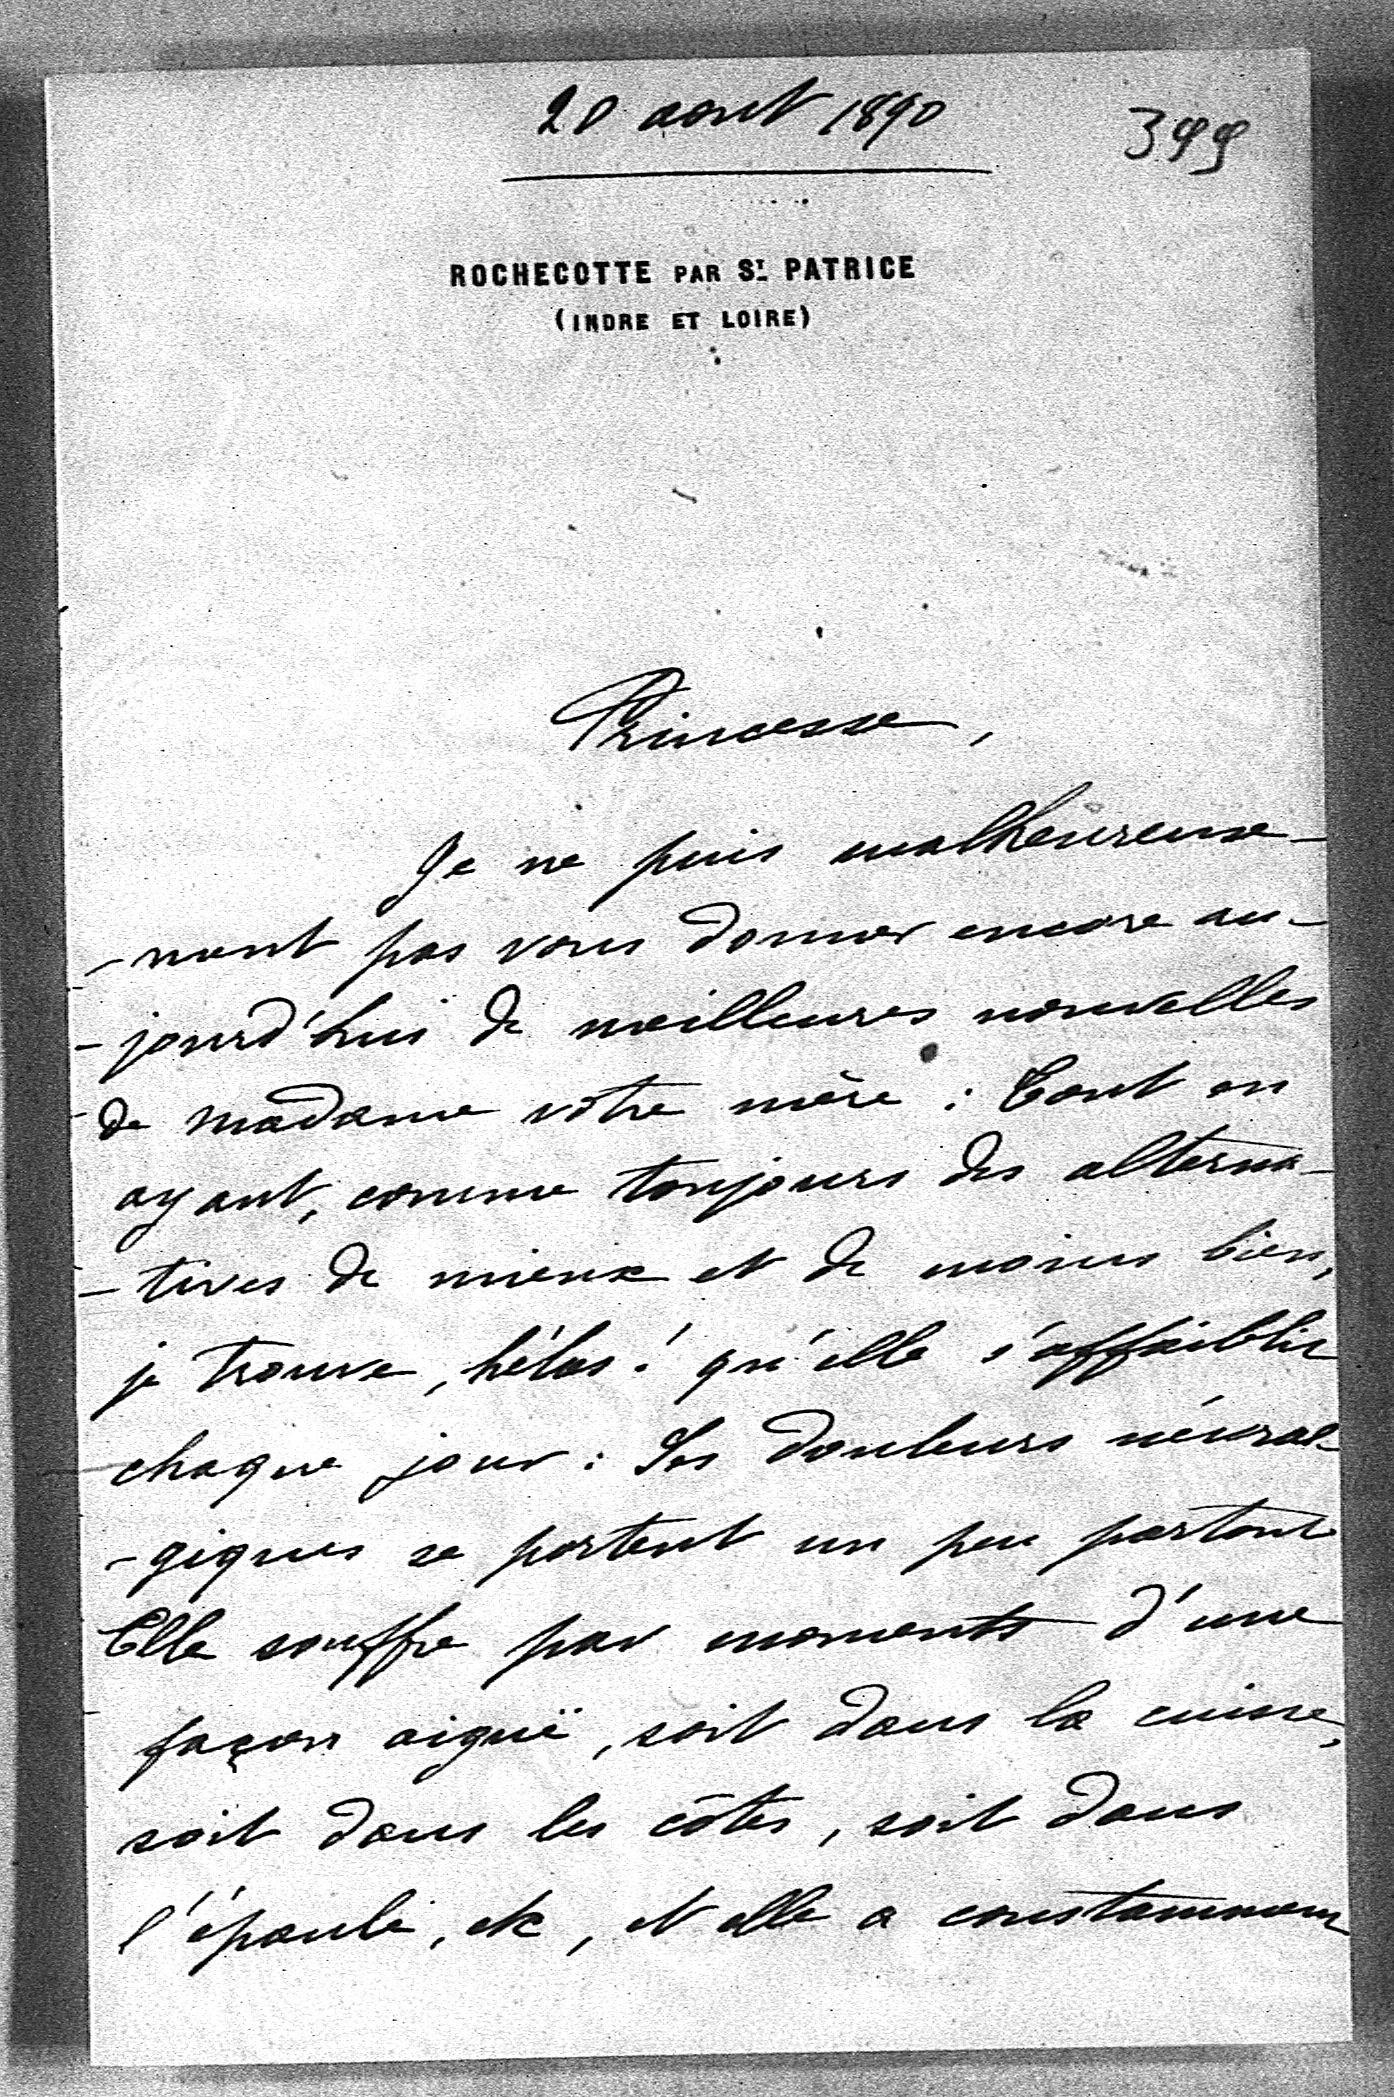 20 aout 1890
399
ROCHECOTTE PAR ST. PATRICE
(INDRE ET LOIRE)
Princesse,
Je ne puis malheureuse-
-ment pas vous donner encore au-
-jourd'hui de meilleures nouvelles
de Madame votre mère : Tout en
ayant, comme toujours des alterna-
-tives de mieux et de moins bien,
je trouve, hélas ! qu'elle s'affaiblit
chaque jour : Ses douleurs névral-
-giques se portent un peu partout
Elle souffre par moments d'une
façon aiguë, soit dans la cuisse,
soit dans les côtes, soit dans
l'épaule, etc, et elle a constamment